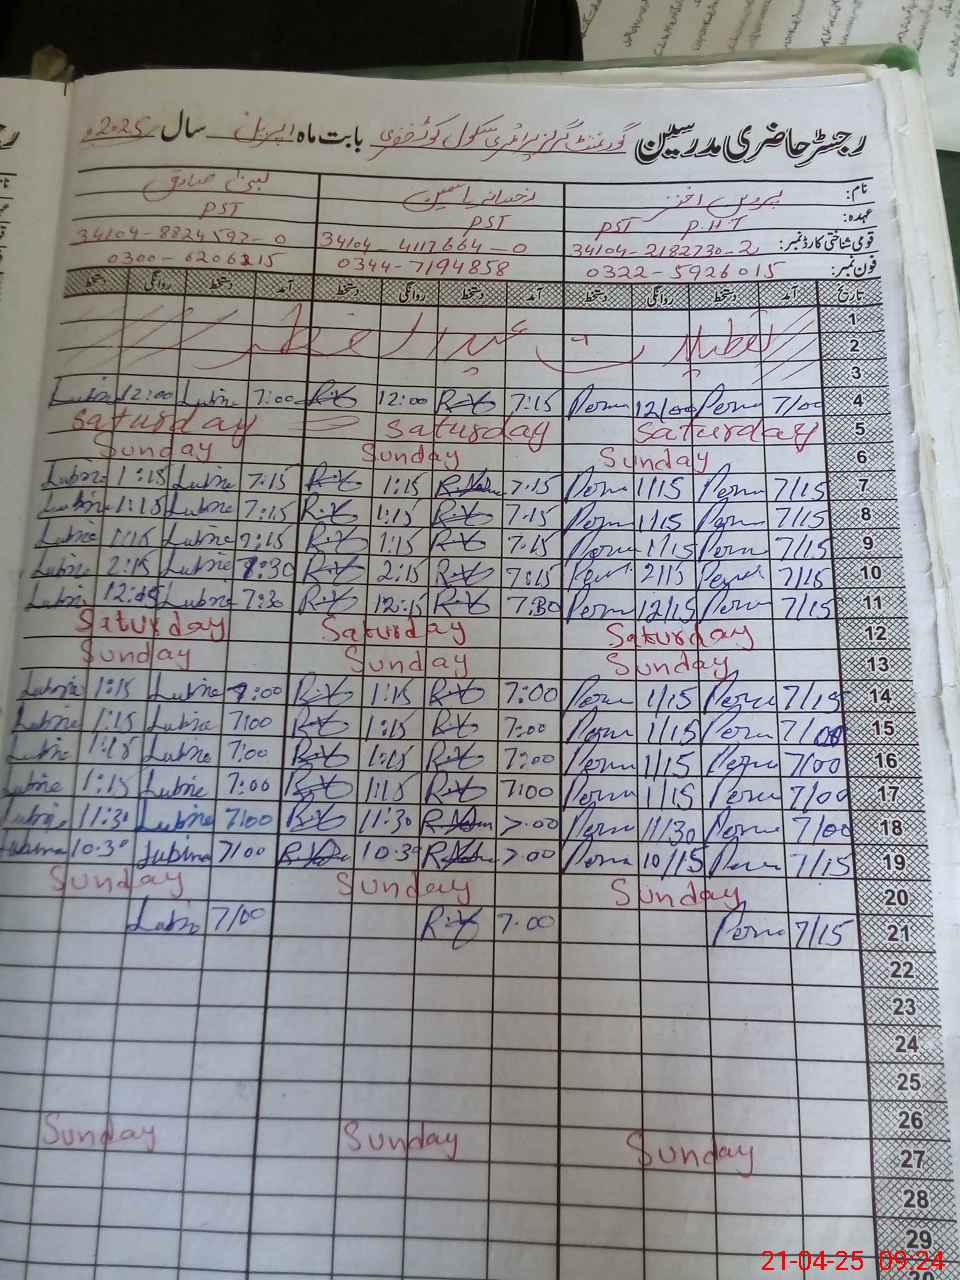 رجسٹر حاضری مدرسین گورنمنٹ گرلز پرائمری سکول کوٹ بابت ماہ اپریل سال 2025ء
نام: پروین اختر رخسانہ یاسمین لبنیٰ صادق
عہدہ: PST P.H.T PST PST
قومی شناختی کارڈ نمبر: 34104-2182730-2 34104-4117664-0 34104-8824592-0
فون نمبر: 0322-5926015 0344-7194858 0300-6206215
تاریخ آمد دستخط روانگی دستخط آمد دستخط روانگی دستخط آمد دستخط روانگی دستخط
1
2 تعطیلات عید الفطر
3
4 7/00 Perv 12/00 Perv 7:15 R.Y 12:00 R.Y 7:00 Lubna 12:00 Lubna
5 Saturday Saturday Saturday
6 Sunday Sunday Sunday
7 7/15 Perv 1/15 Perv 7.15 1:15 R.Y 7.15 Lubna 1:15 Lubna
8 7/15 Perv 1/15 Perv 7.15 R.Y 1:15 R.Y 7:15 Lubna 1:15 Lubna
9 7/15 Perv 1/15 Perv 7.15 R.Y 1:15 R.Y 7:15 Lubna 1:15 Lubna
10 7/15 2/15 7:15 R.Y 2:15 R.Y 7:30 Lubna 2:15 Lubna
11 7/15 Perv 12/15 Perv 7:30 R.Y 12:15 R.Y 7:30 Lubna Lubna
12 Saturday Saturday Saturday
13 Sunday Sunday Sunday
14 7/15 Perv 1/15 Perv 7:00 R.Y 1:15 R.Y 7:00 Lubna 1:15 Lubna
15 7/00 Perv 1/15 Perv 7:00 R.Y 1:15 R.Y 7:00 Lubna 1:15 Lubna
16 7/00 Perv 1/15 Perv 7:00 R.Y 1:15 R.Y 7:00 Lubna 1:15 Lubna
17 7/00 Perv 1/15 Perv 7:00 R.Y 1:15 R.Y 7:00 Lubna 1:15 Lubna
18 7/00 Perv 11/30 Perv 7:00 11:30 R.Y 7/00 Lubna 11:30 Lubna
19 7/15 Perv 10/15 Perv 7:00 10:30 7/00 Lubna 10:30 Lubna
20 Sunday Sunday Sunday
21 7/15 Perv 7:00 R.Y 7/00 Lubna
22
23
24
25
26
27 Sunday Sunday Sunday
28
29
21-04-25 09:24